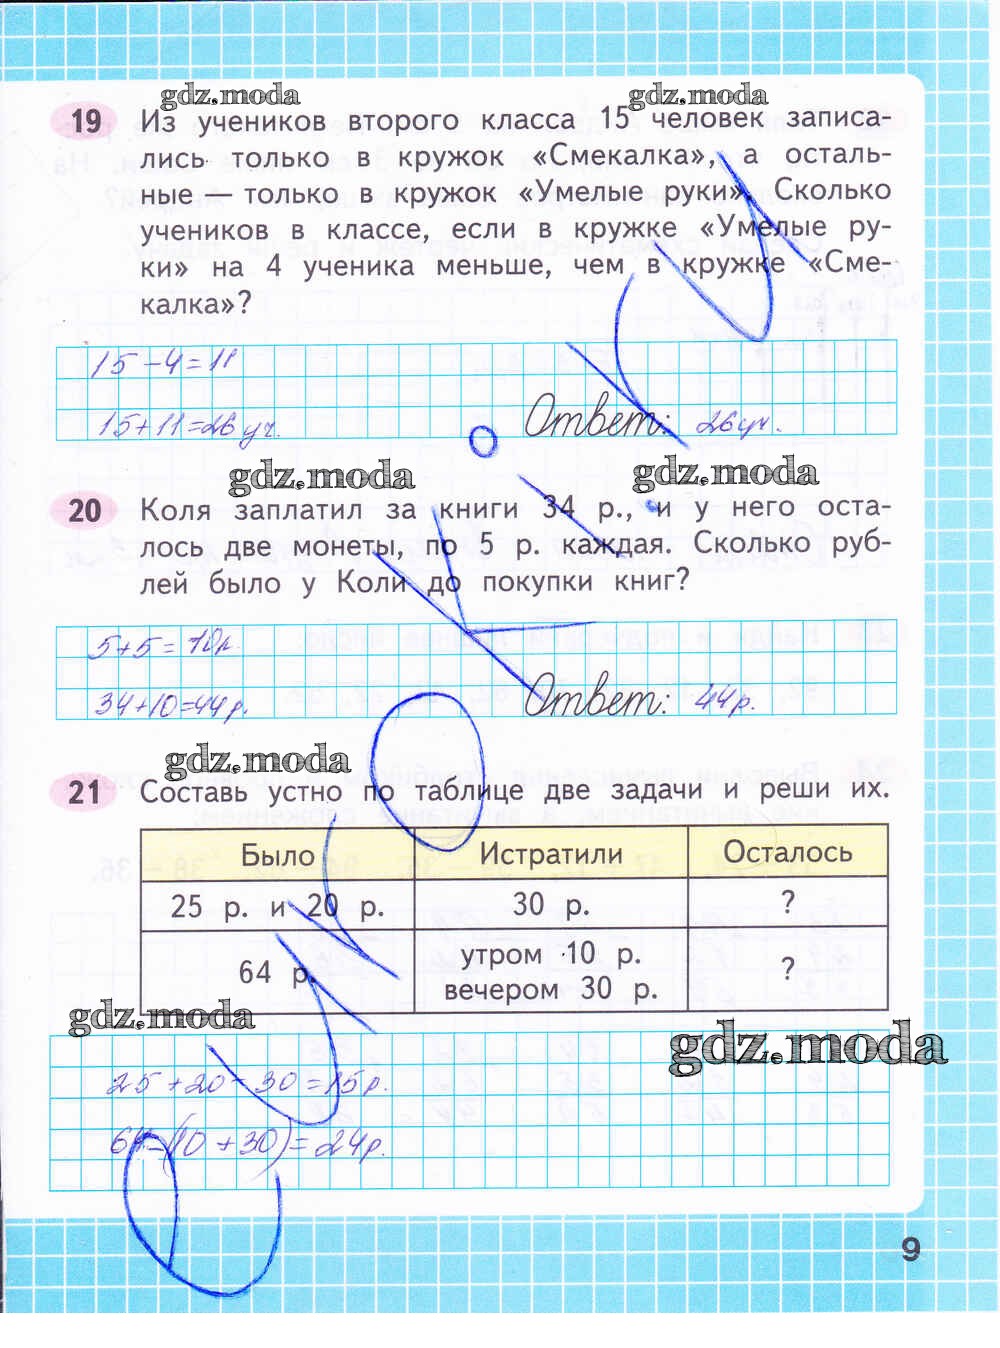 gdz.moda gdz.moda
19 Из учеников второго класса 15 человек записа-
лись только в кружок «Смекалка», а осталь-
ные — только в кружок «Умелые руки». Сколько
учеников в классе, если в кружке «Умелые ру-
ки» на 4 ученика меньше, чем в кружке «Сме-
калка»?
15-4=11
15+11=26 уч. Ответ: 26 уч.
gdz.moda gdz.moda
20 Коля заплатил за книги 34 р., и у него оста-
лось две монеты, по 5 р. каждая. Сколько руб-
лей было у Коли до покупки книг?
5+5=10р.
34+10=44р. Ответ: 44р.
gdz.moda
21 Составь устно по таблице две задачи и реши их.
Было Истратили Осталось
25 р. и 20 р. 30 р. ?
64 р. утром 10 р. ?
вечером 30 р.
gdz.moda
gdz.moda
25+20-30=15р.
64-(10+30)=24р.
9